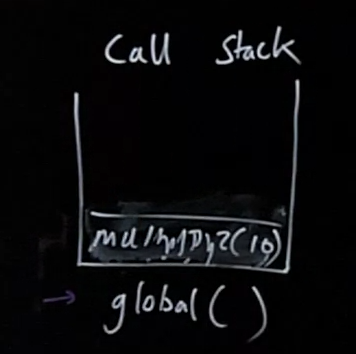 Call Stack
multiplyBy2(10)
global( )